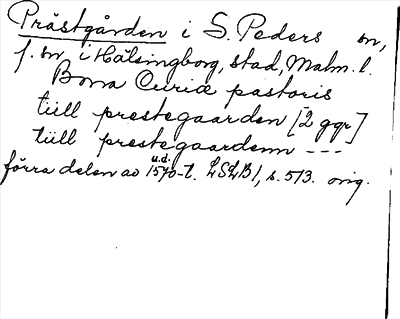 Prästgården i S. Peders sn,
f. sn i Hälsingborg, stad, Malm. l.
Bona Curiæ pastoris
tüll prestegaarden [2 ggr]
tüll prestegaardenn ---
u.d.
förra delen av 1570-t. LSLB1, s. 513. orig.